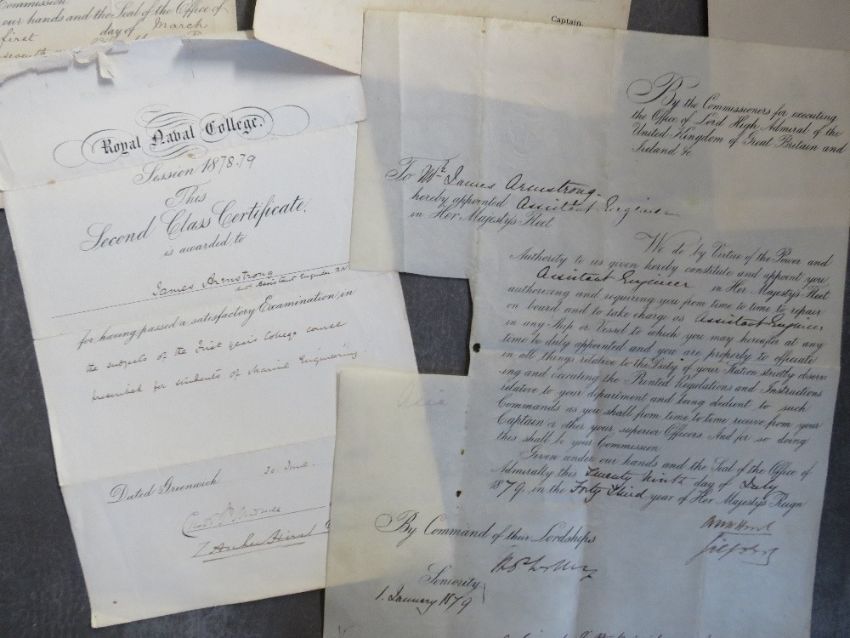 Commission.
our hands and the Seal of the Office of
first day of March
Captain.
Royal Naval College.
Session 1878-79
This
Second Class Certificate.
is awarded to
James Armstrong
Assistant Engineer
for having passed a satisfactory Examination in
the subjects of the First year's College course
prescribed for students of Marine Engineering
Dated Greenwich 30 June
By the Commissioners for executing
the Office of Lord High Admiral of the
United Kingdom of Great Britain and
Ireland &c
To Mr. James Armstrong
hereby appointed Assistant Engineer
in Her Majesty's Fleet
We do by Virtue of the Power and
Authority to us given hereby constitute and appoint you
Assistant Engineer in Her Majesty's Fleet
authorizing and requiring you from time to time to repair
on board and to take charge as Assistant Engineer
in any Ship or Vessel to which you may hereafter at any
time be duly appointed and you are properly to officiate
in all things relative to the Duty of your Station strictly observ
ing and executing the Printed Regulations and Instructions
relative to your department and being obedient to such
Commands as you shall from time to time receive from your
Captain or other your superior Officers And for so doing
this shall be your Commission
Given under our hands and the Seal of the Office of
Admiralty this Twenty Ninth day of July
1879, in the Forty Third year of Her Majesty's Reign
By Command of their Lordships
Seniority
1. January 1879